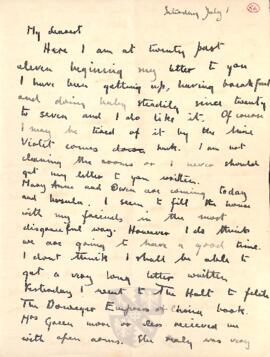 Saturday July 1
56
My dearest
Here I am at twenty past
eleven beginning my letter to you
I have been getting up, having breakfast
and doing baby steadily since twenty
to seven and I do like it. Of course
I may be tired of it by the time
Violet comes back. I am not
cleaning the rooms or I never should
get my letter to you written.
Mary Anne and Owen are coming today
and Ursula. I seem to fill the house
with my friends in the most
disgraceful way. However I do think
we are going to have a good time.
I dont think I shall be able to
get a very long letter written
Yesterday I went to The Halt to fetch
The Dowager Empress of China book.
Mrs Green more or less recieved me
with open arms. She really was very